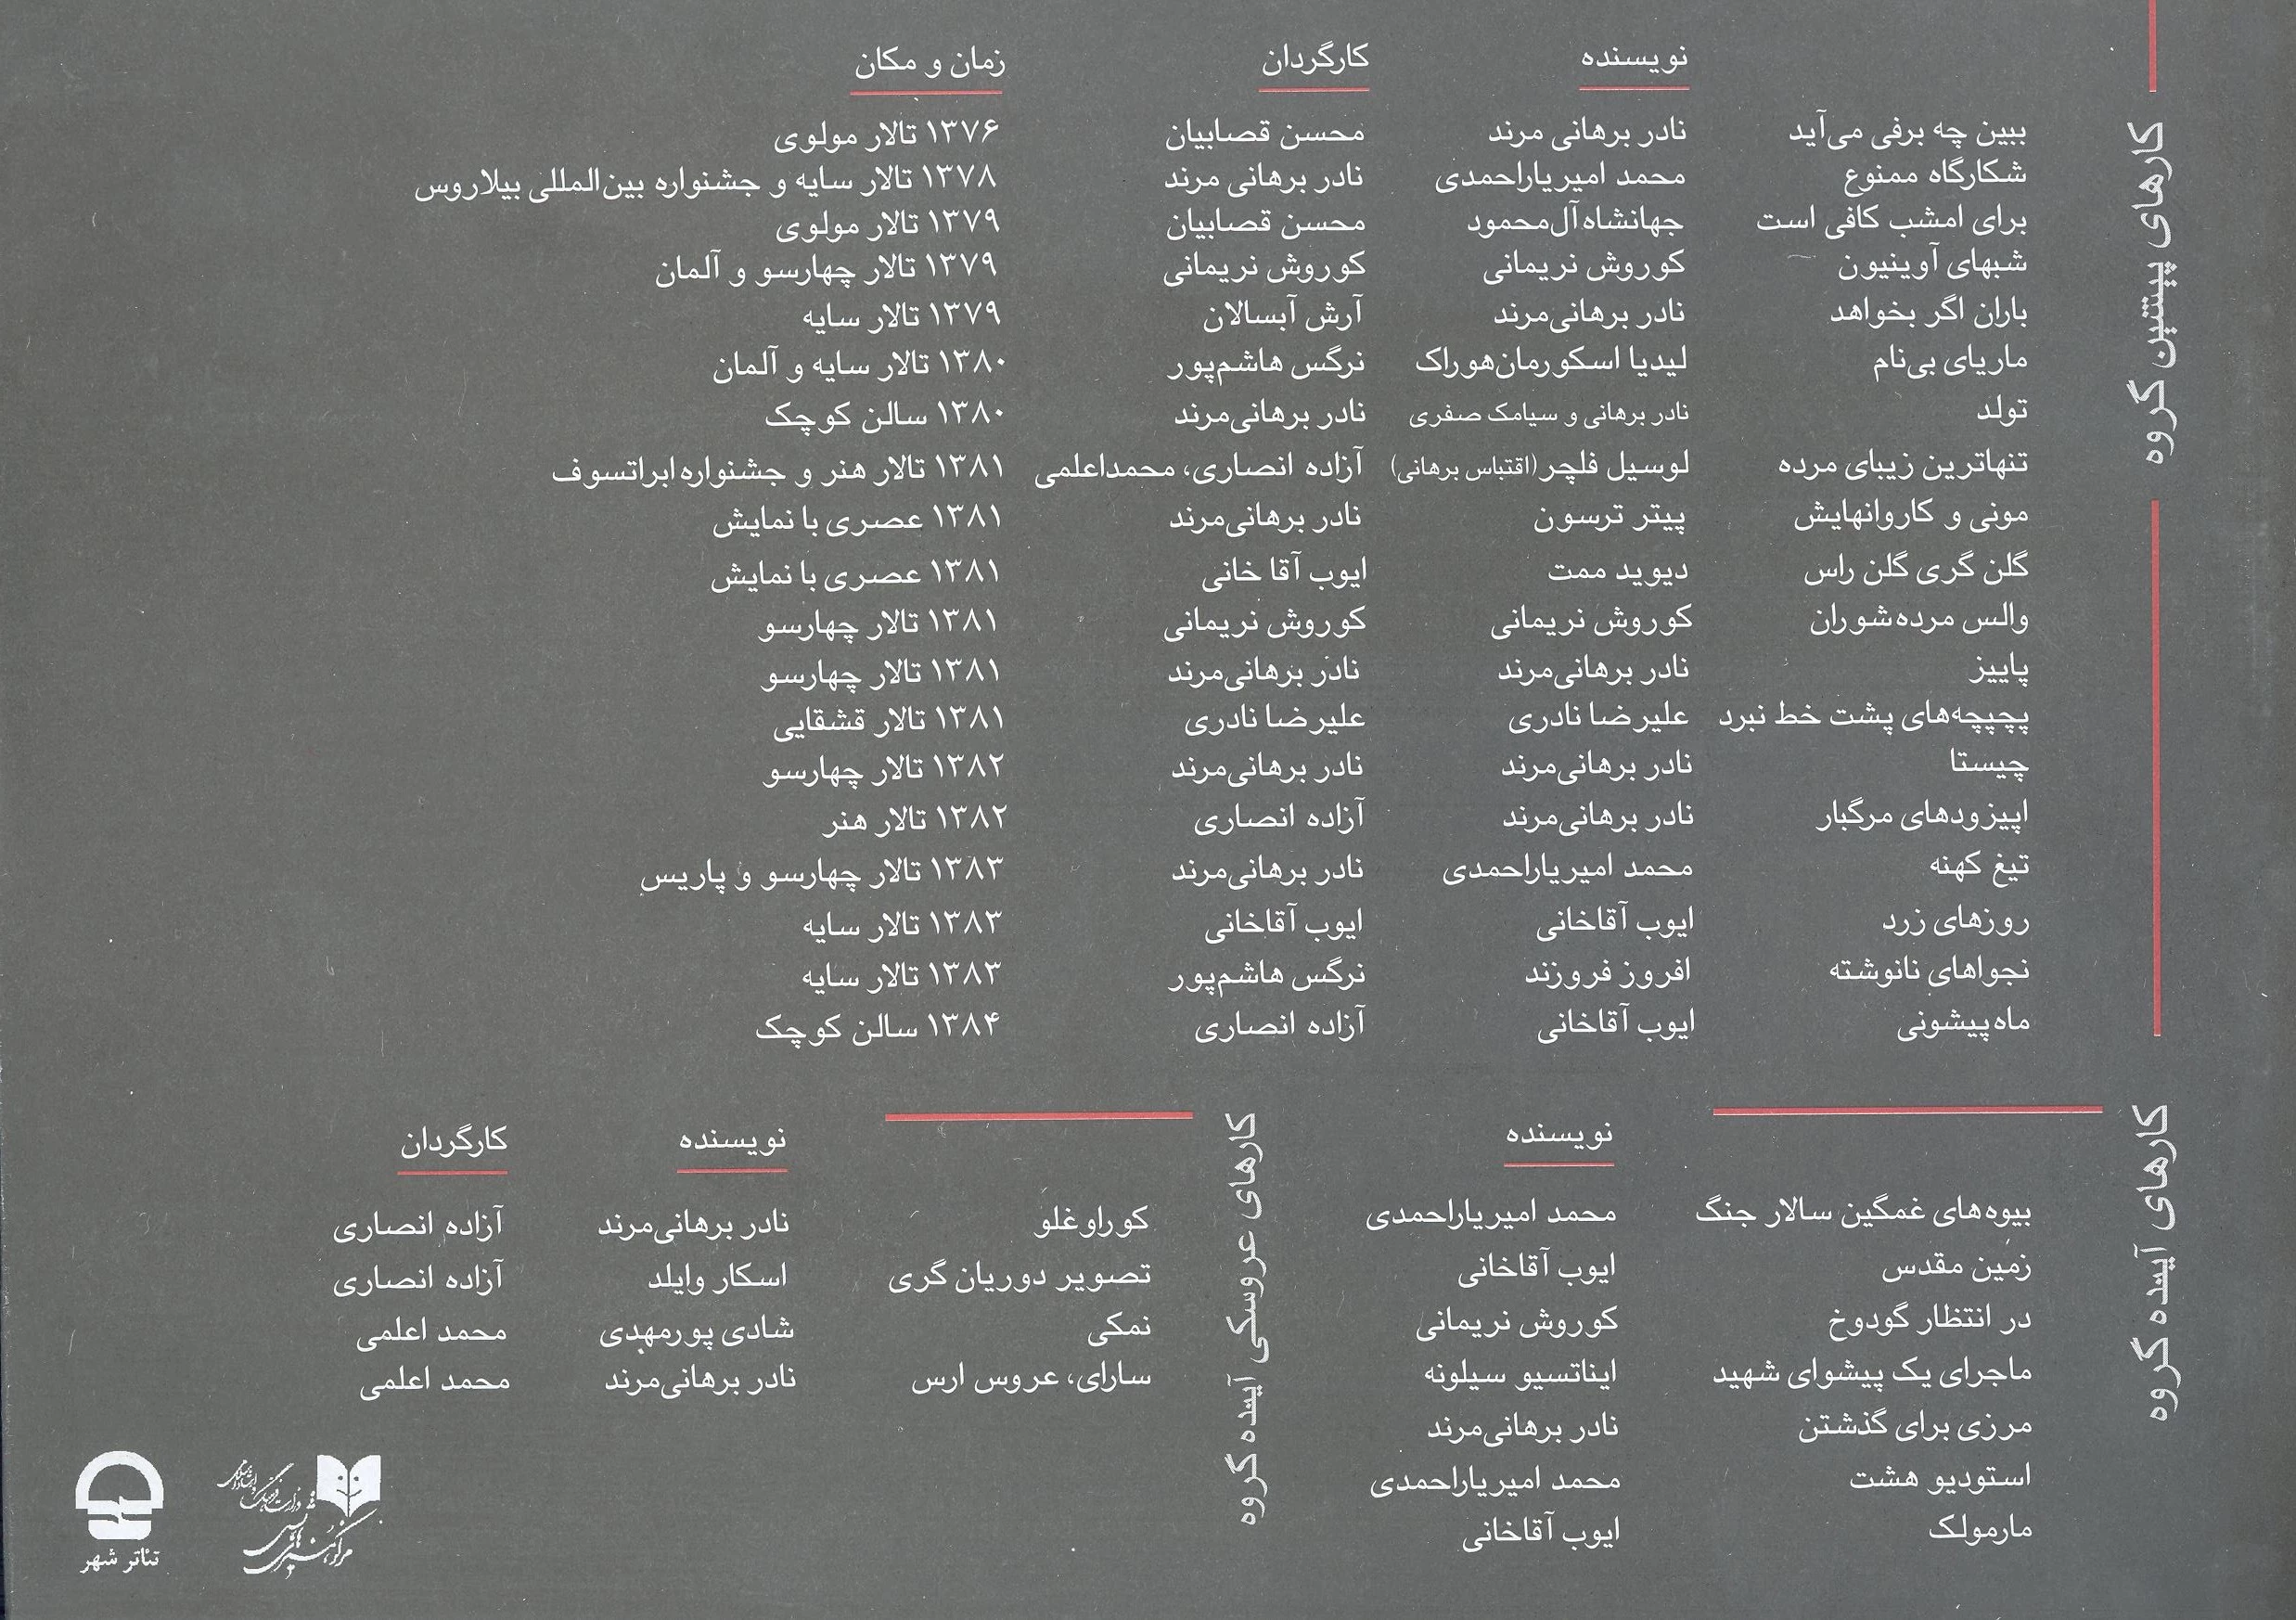 کارهای پیشین گروه
نویسنده کارگردان زمان و مکان
ببین چه برفی می‌آید نادر برهانی مرند محسن قصابیان ۱۳۷۶ تالار مولوی
شکارگاه ممنوع محمد امیریاراحمدی نادر برهانی مرند ۱۳۷۸ تالار سایه و جشنواره بین‌المللی بیلاروس
برای امشب کافی است جهانشاه آل‌محمود محسن قصابیان ۱۳۷۹ تالار مولوی
شبهای آوینیون کوروش نریمانی کوروش نریمانی ۱۳۷۹ تالار چهارسو و آلمان
باران اگر بخواهد نادر برهانی‌مرند آرش آبسالان ۱۳۷۹ تالار سایه
ماریای بی‌نام لیدیا اسکورمان‌هوراک نرگس هاشم‌پور ۱۳۸۰ تالار سایه و آلمان
تولد نادر برهانی و سیامک صفری نادر برهانی‌مرند ۱۳۸۰ سالن کوچک
تنهاترین زیبای مرده لوسیل فلچر (اقتباس برهانی) آزاده انصاری، محمداعلمی ۱۳۸۱ تالار هنر و جشنواره ابراتسوف
مونی و کاروانهایش پیتر ترسون نادر برهانی‌مرند ۱۳۸۱ عصری با نمایش
گلن گری گلن راس دیوید ممت ایوب آقا خانی ۱۳۸۱ عصری با نمایش
والس مرده‌شوران کوروش نریمانی کوروش نریمانی ۱۳۸۱ تالار چهارسو
پاییز نادر برهانی‌مرند نادر برهانی‌مرند ۱۳۸۱ تالار چهارسو
پچپچه‌های پشت خط نبرد علیرضا نادری علیرضا نادری ۱۳۸۱ تالار قشقایی
چیستا نادر برهانی‌مرند نادر برهانی‌مرند ۱۳۸۲ تالار چهارسو
اپیزودهای مرگبار نادر برهانی‌مرند آزاده انصاری ۱۳۸۲ تالار هنر
تیغ کهنه محمد امیریاراحمدی نادر برهانی‌مرند ۱۳۸۳ تالار چهارسو و پاریس
روزهای زرد ایوب آقاخانی ایوب آقاخانی ۱۳۸۳ تالار سایه
نجواهای نانوشته افروز فروزند نرگس هاشم‌پور ۱۳۸۳ تالار سایه
ماه‌پیشونی ایوب آقاخانی آزاده انصاری ۱۳۸۴ سالن کوچک
کارهای آینده گروه
نویسنده
بیوه‌های غمگین سالار جنگ محمد امیریاراحمدی
زمین مقدس ایوب آقاخانی
در انتظار گودوخ کوروش نریمانی
ماجرای یک پیشوای شهید ایناتسیو سیلونه
مرزی برای گذشتن نادر برهانی‌مرند
استودیو هشت محمد امیریاراحمدی
مارمولک ایوب آقاخانی
کارهای عروسکی آینده گروه
نویسنده کارگردان
کوراوغلو نادر برهانی‌مرند آزاده انصاری
تصویر دوریان گری اسکار وایلد آزاده انصاری
نمکی شادی پورمهدی محمد اعلمی
سارای، عروس ارس نادر برهانی‌مرند محمد اعلمی
وزارت فرهنگ و ارشاد اسلامی
مرکز هنرهای نمایشی
تئاتر شهر